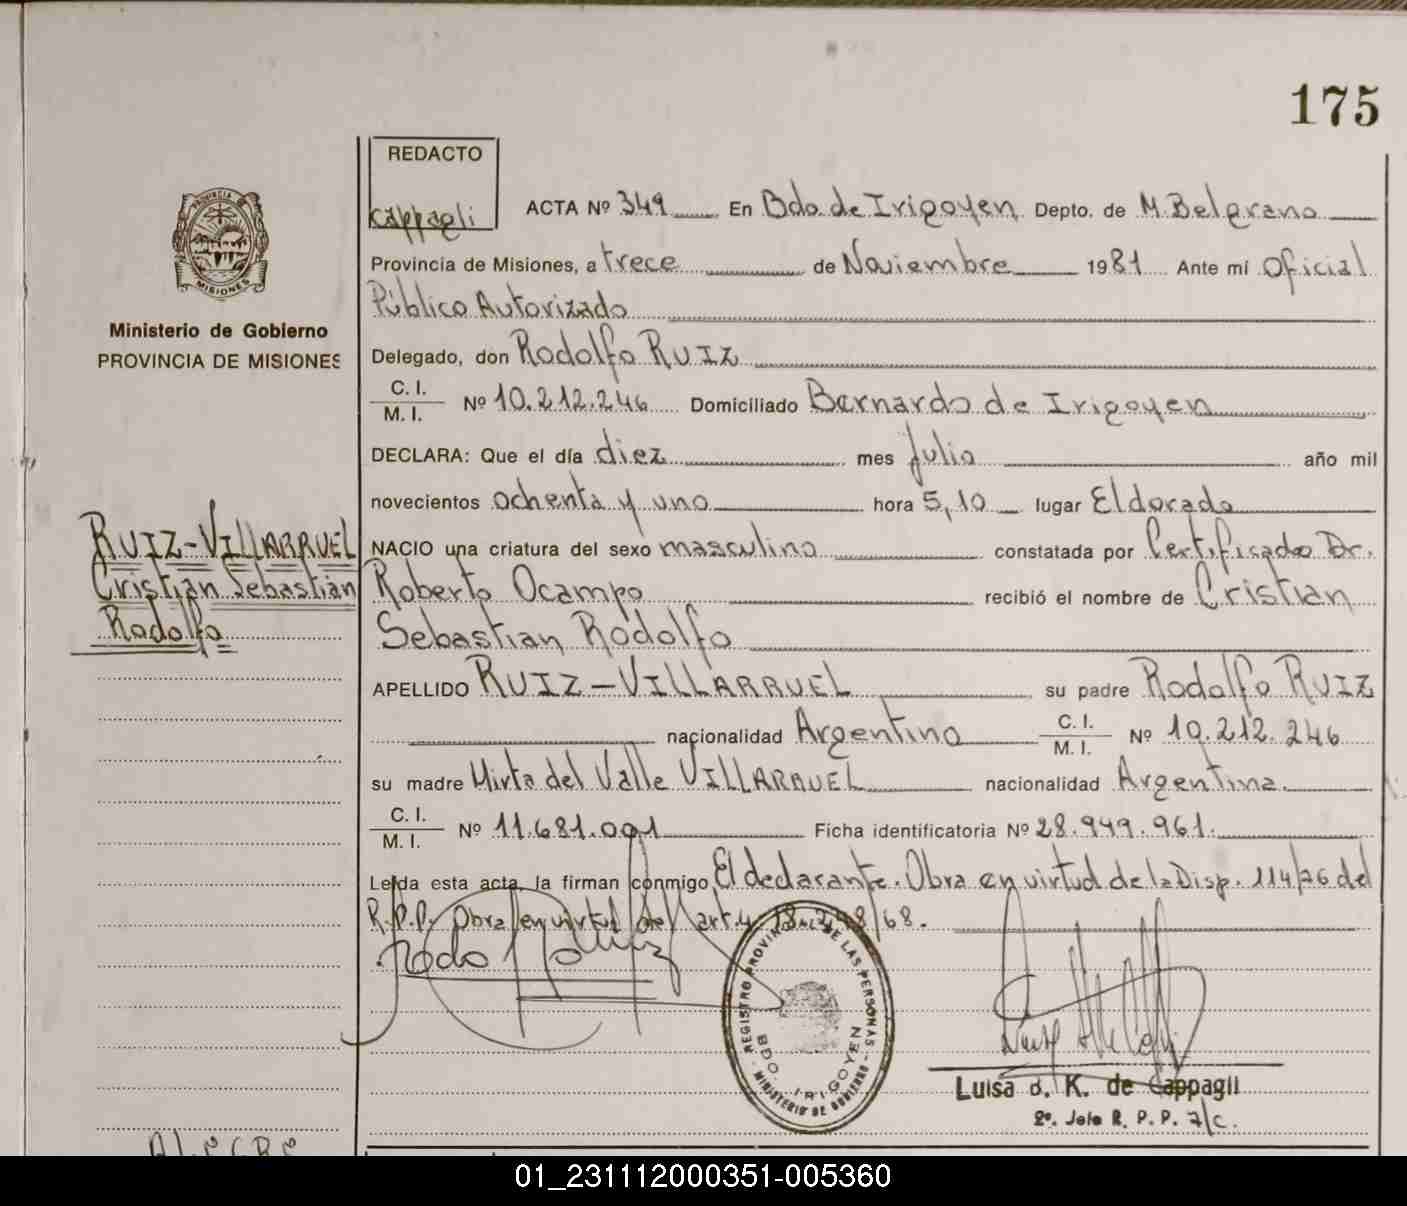 175
REDACTO
Cappagli
ACTA Nº 349 En Bdo. de Irigoyen Depto. de M. Belgrano
Provincia de Misiones, a trece de Noviembre 1981 Ante mí Oficial
Público Autorizado
Delegado, don Rodolfo RUIZ
C. I.
M. I. Nº 10.212.246 Domiciliado Bernardo de Irigoyen
DECLARA: Que el día diez mes Julio año mil
novecientos ochenta y uno hora 5,10 lugar Eldorado
NACIO una criatura del sexo masculino constatada por Certificado Dr.
Roberto Ocampo recibió el nombre de Cristian
Sebastian Rodolfo
APELLIDO RUIZ-VILLARRUEL su padre Rodolfo RUIZ
nacionalidad Argentino C. I.
M. I. Nº 10.212.246
su madre Mirta del Valle VILLARRUEL nacionalidad Argentina.
C. I.
M. I. Nº 11.681.091 Ficha identificatoria Nº 28.949.961.
Leída esta acta, la firman conmigo, El declarante. Obra en virtud de la Disp. 114/76 del
R.P.P. Obra en virtud del art. 4 18.248/68.
PROVINCIA DE
MISIONES
Ministerio de Gobierno
PROVINCIA DE MISIONES
RUIZ-VILLARRUEL
Cristian Sebastián
Rodolfo
REGISTRO PROVINCIAL DE LAS PERSONAS
BDO. IRIGOYEN
MINISTERIO DE GOBIERNO
Luisa B. K. de Cappagli
2º. Jefe R. P. P. 7/c.
01_231112000351-005360